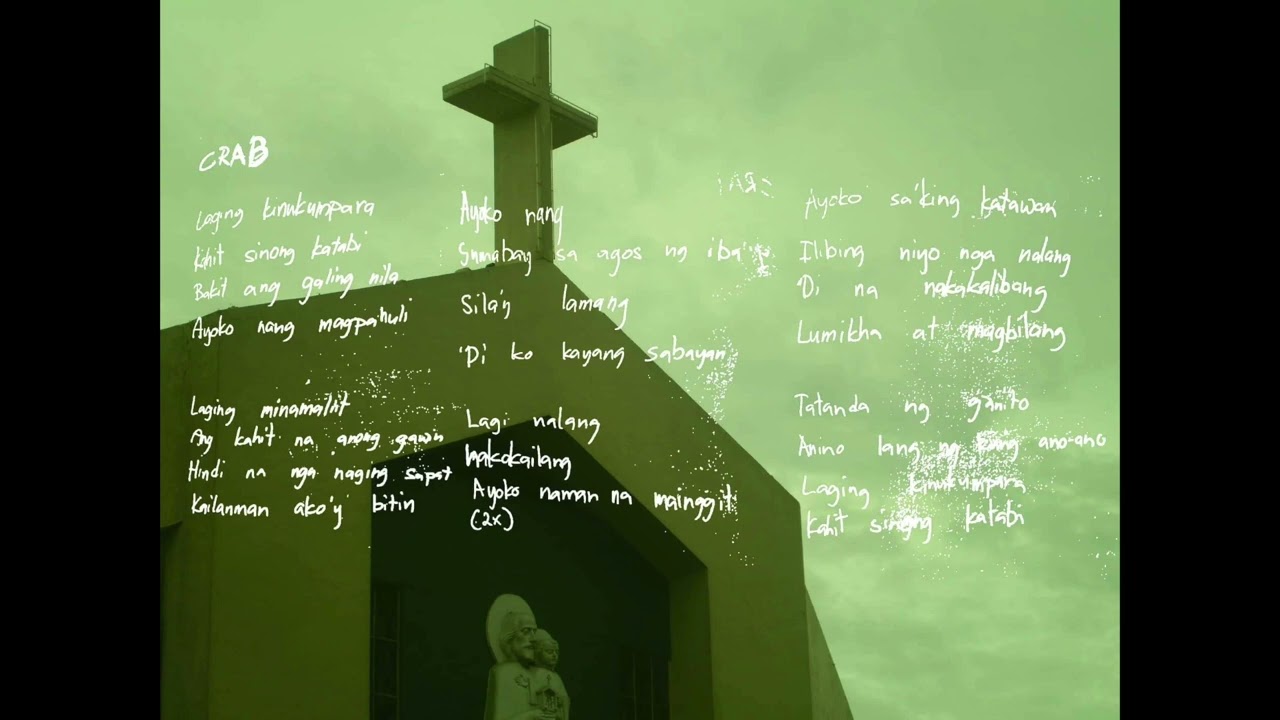 CRAB
Laging kinukumpara
Kahit sinong katabi
Bakit ang galing nila
Ayoko nang magpahuli
Laging minamaliit
Ang kahit na anong gawin
Hindi na nga naging sapat
Kailanman ako'y bitin
Ayoko nang
Sumabay sa agos ng iba
Sila'y lamang
'Di ko kayang sabayan
Lagi nalang
Nakakailang
Ayoko naman na mainggit
(2x)
Ayoko sa'king katawan
Ilibing niyo nga nalang
Di na nakakalibang
Lumikha at magbilang
Tatanda ng ganito
Anino lang ng kung ano-ano
Laging kinukumpara
Kahit sinong katabi